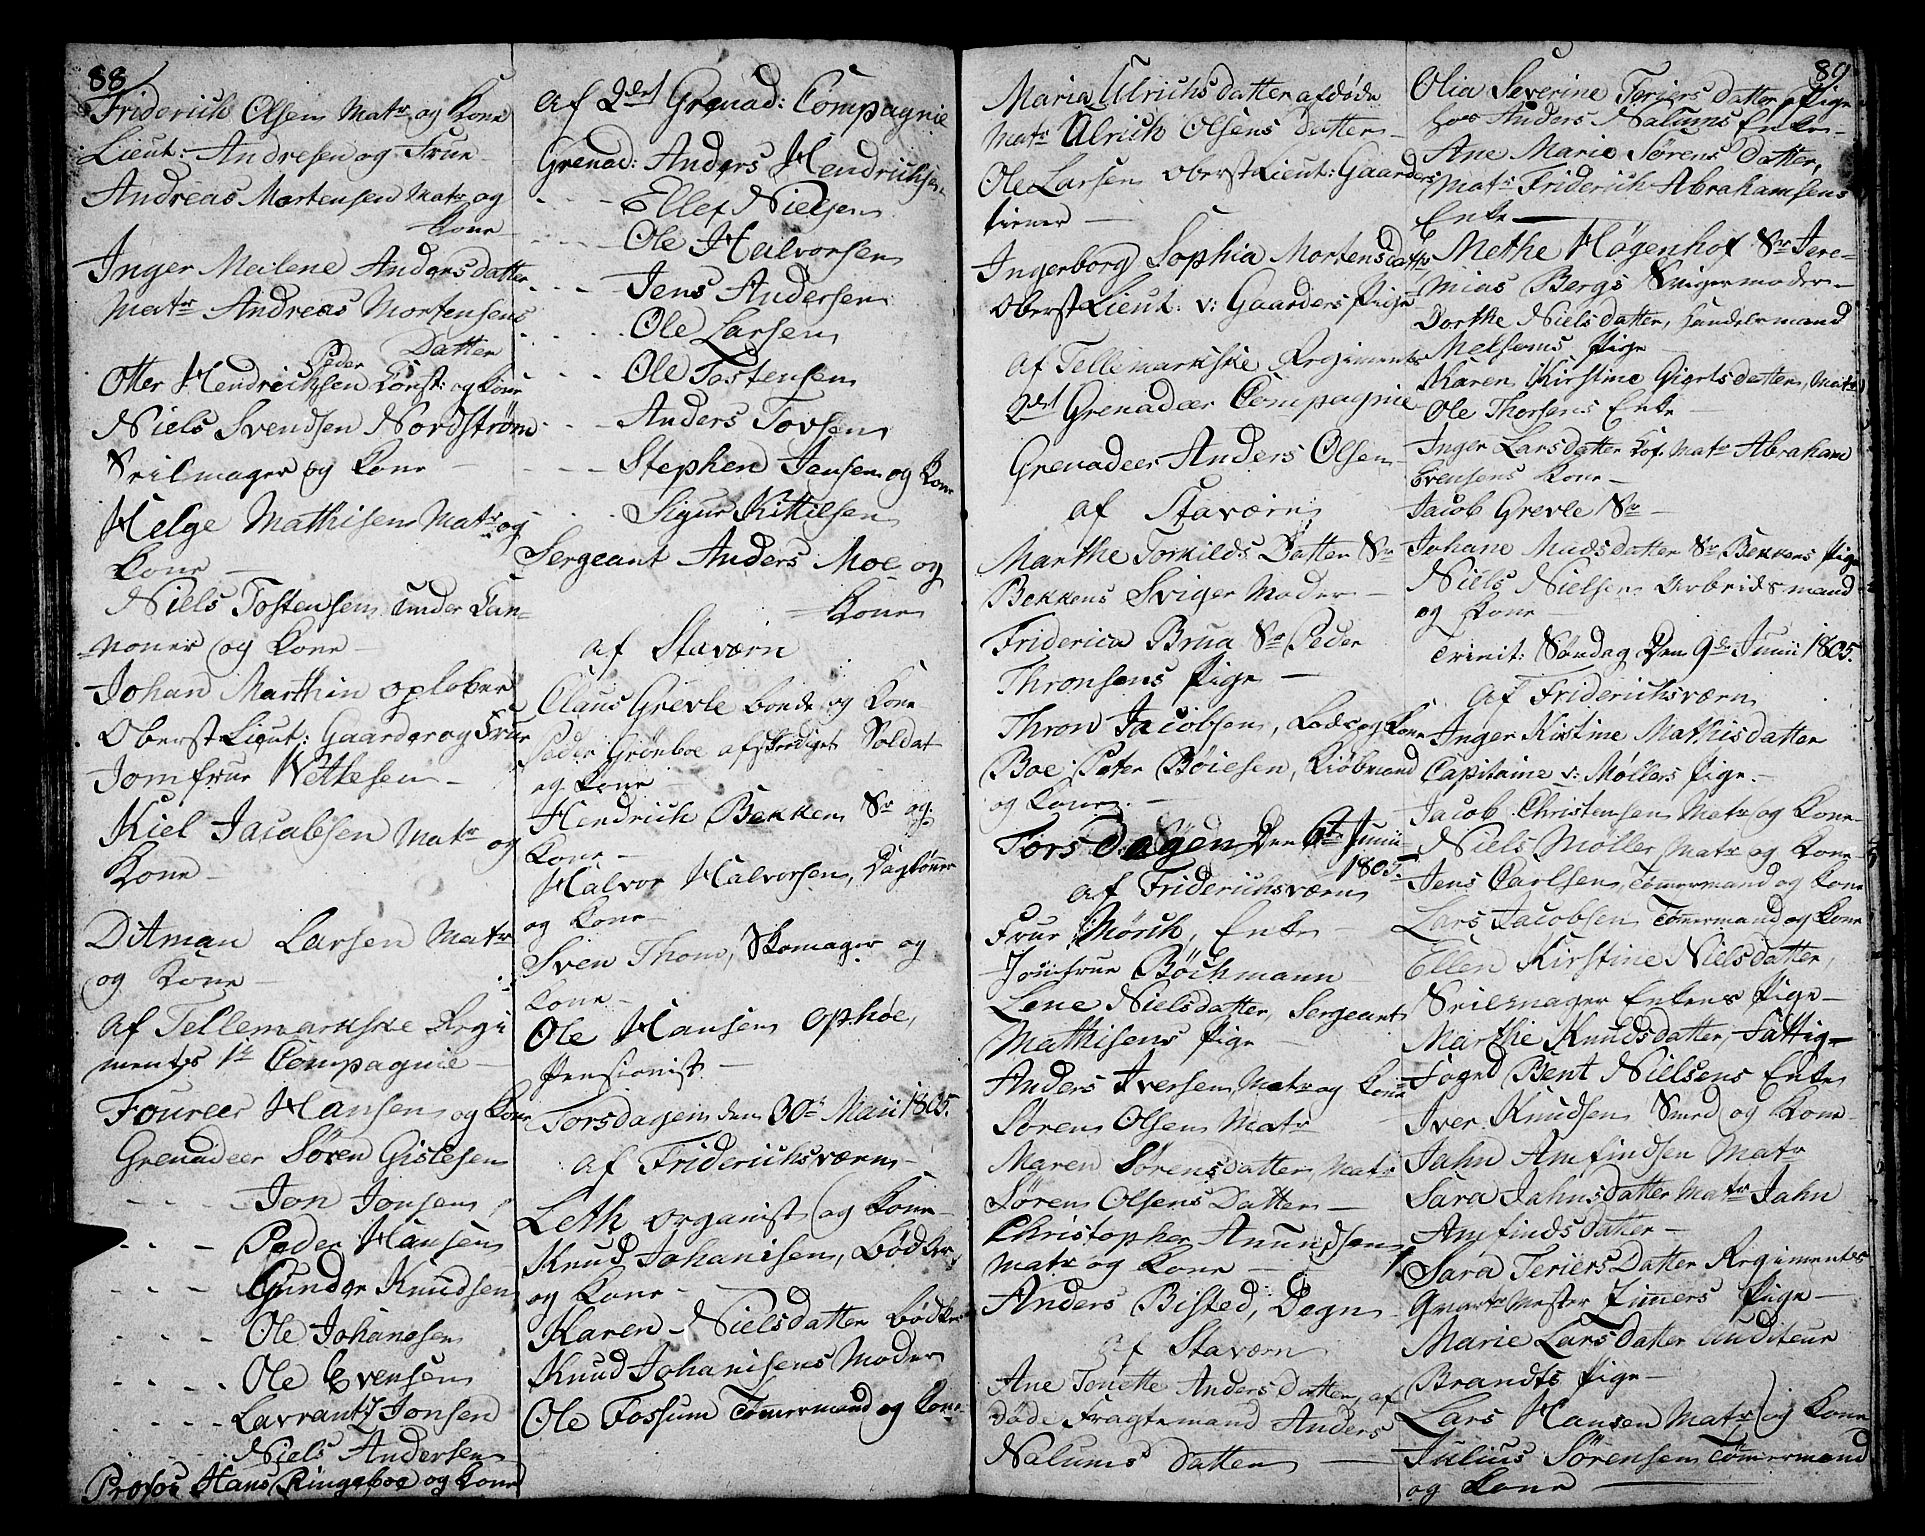 88
Friderich Olsen Matr og Kone
Lieut: Andresen og Frue
Andreas Mortensen Matr og
Kone
Inger Meilene Andersdatter
Matr Andreas Mortensens
Datter
Peder
Otter Hendrichsen Const: og Kone
Niels Svendsen Nordstrøm
Seilmager og Kone
Helge Mathisen Matr og
Kone
Niels Tostensen under Kan-
noner og Kone
Johan Marthin opløber
Oberst Lieut: Gaarder og Frue
Jomfrue Wettesen
Kiel Jacobsen Matr og
Kone
Ditman Larsen Matr
og Kone
Af Tellemarkske Regi
mentes 1te Compagnie
Foureer Hansen og Kone
Grenadeer Søren Gislesen
- - - Jon Jonsen
- - - Peder Hansen
- - - Gunder Knudsen
- - - Ole Johansen
- - - Ole Evensen
- - - Lavrants Jonsen
Niels Andersen
Profos Hans Ringeboe og Kone
af 2det Grenad: Compagnie
Grenad: Anders Hendrichsen
- - - Ellef Nielsen
- - - Ole Halvorsen
- - - Jens Andersen
- - - Ole Larsen
- - - Ole Tostensen
- - - Anders Tovsen
- - - Stephen Jansen og Kone
- - - Sigur Kittilsen
Sergeant Anders Moe og
Kone
af Staværn
Claus Grevle bonde og Kone
Peder Grønboe afskediget Soldat
og Kone
Hendrich Bekken Sr og
Kone
Halvor Halvorsen, Dagløner
og Kone
Sven Thom, Skomager og
Kone
Ole Hansen Ophøe,
Pensionist
Torsdagen den 30te Maii 1805.
Af Friderichsværn
Leth organist og Kone
Knud Johanisen, Bødker,
og Kone
Karen Nielsdatter Bødker
Knud Johanisens Moder
Ole Fossum Tømermand og Kone
Maria Ulrichsdatter afdøde
Matr Ulrich Olsens Datter
Ole Larsen Oberst Lieut: Gaarders
tiener
Ingerborg Sophia Mortensdatter
Oberst Lieut. v: Gaarders Pige
Af Tellemarkske Regiments
2det Grenadeer Compagnie
Grenadeer Anders Olsen
af Staværn
Marthe Torkilds Datter Sr
Bekkens Sviger Moder
Friderica Brua Sr Peder
Thronsens Pige
Thron Jacobsen, Lods og Kone
Boe Peter Bøiesen, Kiøbmand
og Kone
Torsdagen Den 6te Junii
1805.
af Friderichsværn
Frue Mørch, Enke
Jomfrue Bøchmann
Lene Nielsdatter, Sergeant
Mathisens Pige
Anders Iversen Matr og Kone
Søren Olsen Matr
Maren Sørensdatter, Matr
Søren Olsens Datter
Christopher Anundsen
Matr og Kone
Anders Bisted, Degn
af Staværn
Ane Tonette Anders Datter, af
døde Fragtemand Anders
Nalums Datter
89
Olia Severine Teriers datter, Pige
hos Anders Nalums Enke
Ane Marie Sørens Datter,
Matr Friderich Abrahamsens
Enke
Methe Høgenhof Sr Jere-
mias Bergs Svigermoder
Dorthe Nielsdatter, Handelsmand
Melsoms Pige
Karen Kirstine Giertsdatter, Matr
Ole Thorsens Enke
Inger Larsdatter Kof. Matr Abraham
Evensens Kone
Jacob Grevle Sr
Johane Madsdatter Sr, Bekkens Pige
Niels Nielsen Arbeidsmand
og Kone
Trinit: Søndag Den 9de Junii 1805.
Af Friderichsværn
Inger Kirstine Mathisdatter
Capitaine v: Møllers Pige
Jacob Christensen Matr og Kone
Niels Møller Matr og Kone
Jens Carlsen, Tømermand og Kone
Lars Jacobsen Tømermand og Kone
Ellen Kirstine Nielsdatter,
Seilmager Enkens Pige
Marthe Knudsdatter, Fattig-
Foged Bent Nielsens Enke
Iver Knudsen Smed og Kone
Jahn Amfindsen Matr
Sara Jahnsdatter Matr Jahn
Amfinds datter
Sara Teriers Datter Regimentes
Qvarter Mester Zimers Pige
Marie Lars Datter Auditeur
Brandts Pige
Lars Hansen Matr og Kone
Julius Sørensen Tømermand
og Kone